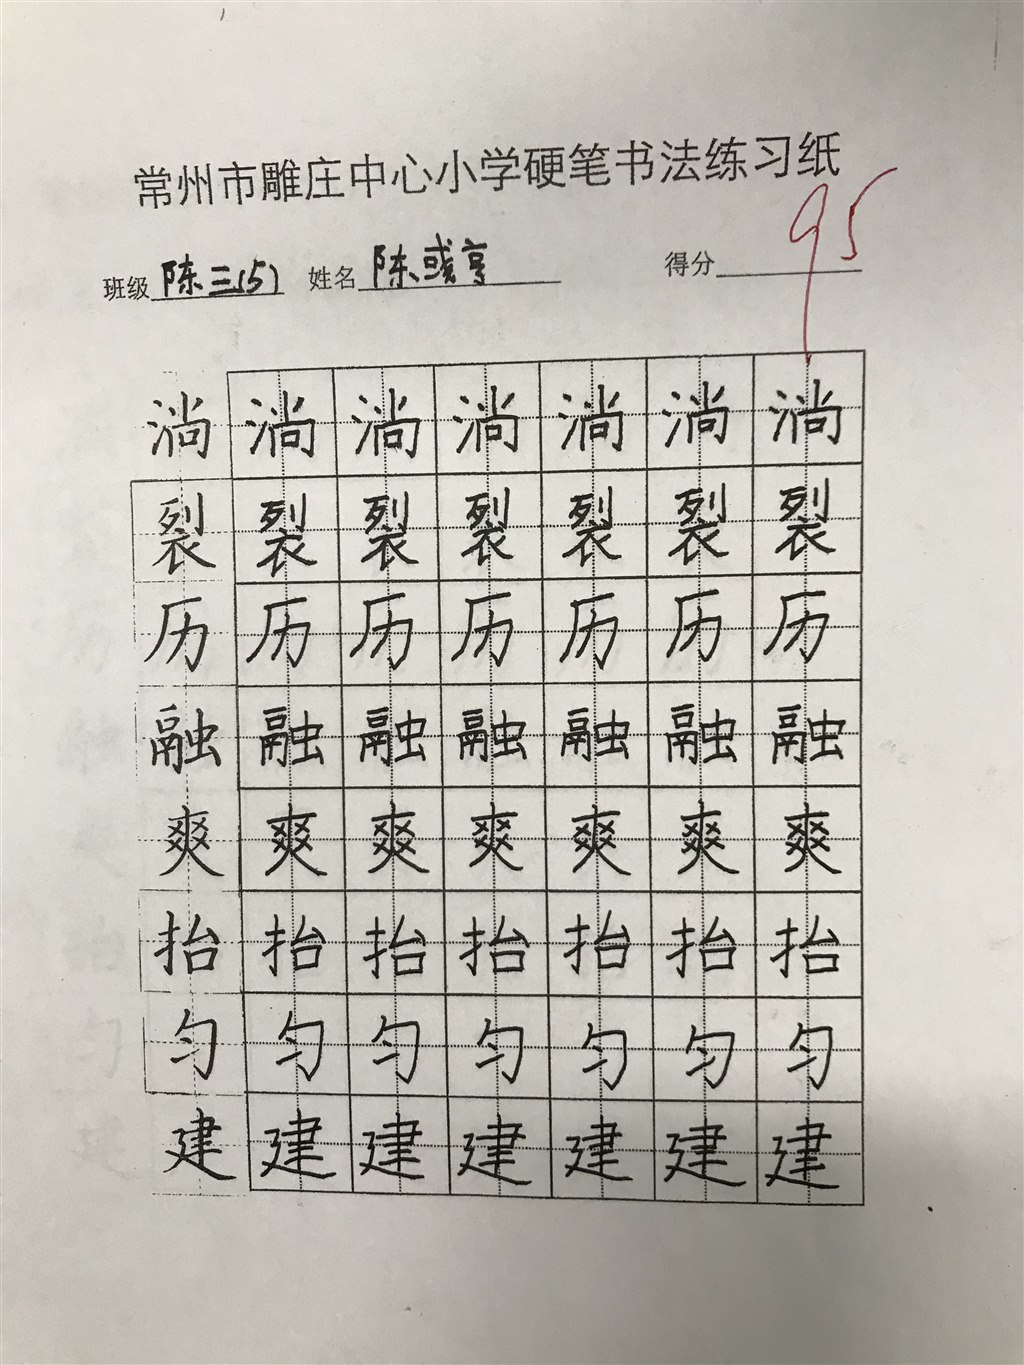 常州市雕庄中心小学硬笔书法练习纸
班级 陈三(5) 姓名 陈彧亨 得分 95
淌 淌 淌 淌 淌 淌 淌
裂 裂 裂 裂 裂 裂 裂
历 历 历 历 历 历 历
融 融 融 融 融 融 融
爽 爽 爽 爽 爽 爽 爽
抬 抬 抬 抬 抬 抬 抬
匀 匀 匀 匀 匀 匀 匀
建 建 建 建 建 建 建